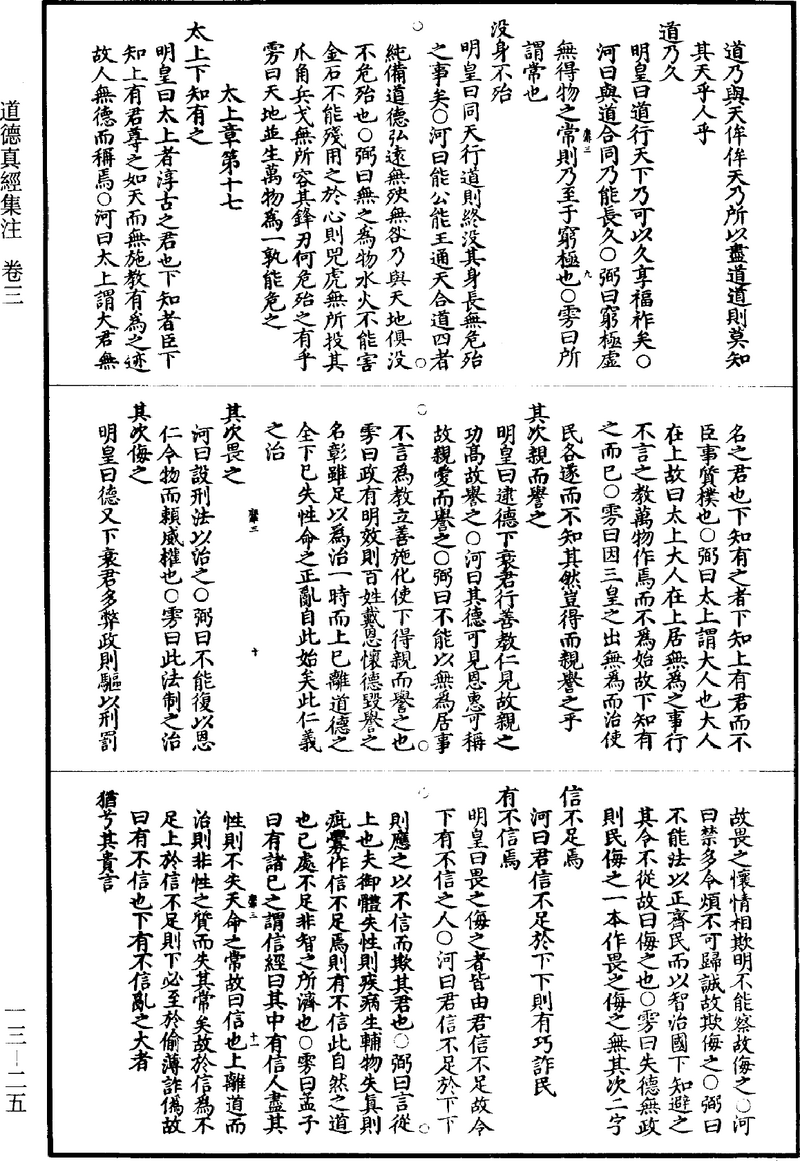 道德真經集注　卷三
一三—二五
道乃與天侔侔天乃所以盡道道則莫知
其天乎人乎
道乃久
明皇曰道行天下乃可以久享福祚矣○
河曰與道合同乃能長久○弼曰窮極虛
無得物之常則乃至于窮極也○雱曰所
謂常也
没身不殆
明皇曰同天行道則終没其身長無危殆
之事矣○河曰能公能王通天合道四者
純備道德弘遠無殃無咎乃與天地俱没
不危殆也○弼曰無之為物水火不能害
金石不能殘用之於心則兕虎無所投其
爪角兵戈無所容其鋒刃何危殆之有乎
雱曰天地並生萬物為一孰能危之
太上章第十七
太上下知有之
明皇曰太上者淳古之君也下知者臣下
知上有君尊之如天而無施教有為之迹
故人無德而稱焉○河曰太上謂大君無
名之君也下知有之者下知上有君而不
臣事質樸也○弼曰太上謂大人也大人
在上故曰太上大人在上居無為之事行
不言之教萬物作焉而不為始故下知有
之而已○雱曰因三皇之出無為而治使
民各遂而不知其然豈得而親譽之乎
其次親而譽之
明皇曰逮德下衰君行善教仁見故親之
功高故譽之○河曰其德可見恩惠可稱
故親愛而譽之○弼曰不能以無為居事
不言為教立善施化使下得親而譽之也
雱曰政有明效則百姓戴恩懷德毀譽之
名彰雖足以為治一時而上已離道德之
全下已失性命之正亂自此始矣此仁義
之治
其次畏之
河曰設刑法以治之○弼曰不能復以恩
仁令物而賴威權也○雱曰此法制之治
其次侮之
明皇曰德又下衰君多弊政則驅以刑罰
故畏之懷情相欺明不能察故侮之○河
曰禁多令煩不可歸誠故欺侮之○弼曰
不能法以正齊民而以智治國下知避之
其令不從故曰侮之也○雱曰失德無政
則民侮之一本作畏之侮之無其次二字
信不足焉
河曰君信不足於下下則有巧詐民
有不信焉
明皇曰畏之侮之者皆由君信不足故令
下有不信之人○河曰君信不足於下下
則應之以不信而欺其君也○弼曰言從
上也夫御體失性則疾病生輔物失真則
疵釁作信不足焉則有不信此自然之道
也已處不足非智之所濟也○雱曰孟子
曰有諸已之謂信經曰其中有信人盡其
性則不失天命之常故曰信也上離道而
治則非性之質而失其常矣故於信為不
足上於信不足則下必至於偷薄詐僞故
曰有不信也下有不信亂之大者
猶兮其貴言